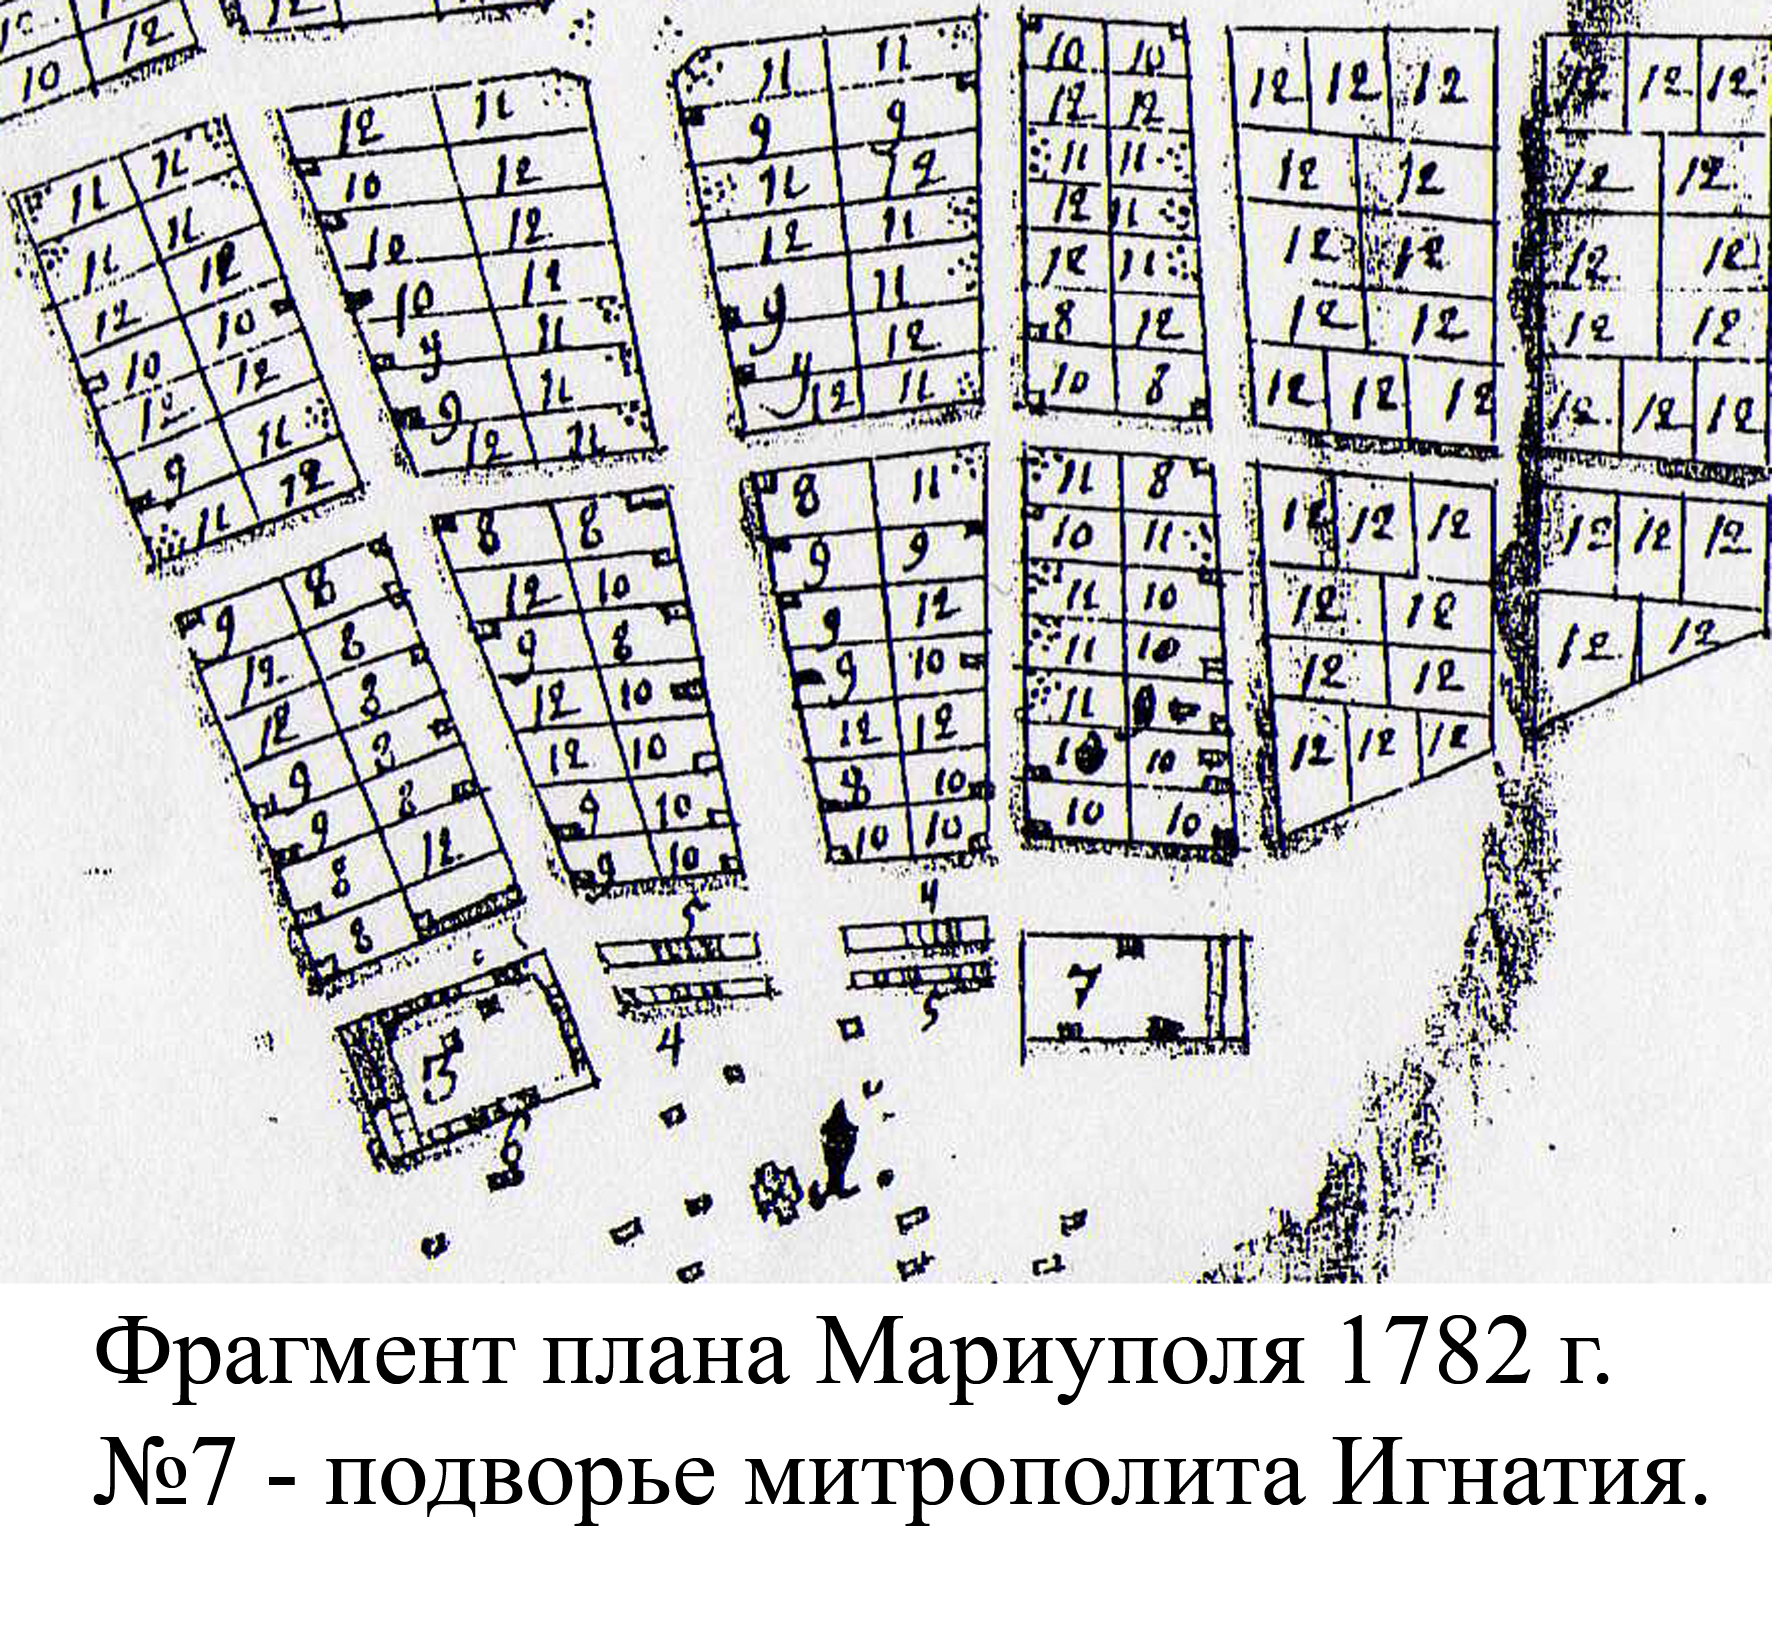 12
10 12
11 11
11 11
12 12
10 10
12 12
9 11
11 12
12 11
10 12
10 12
10 12
9 11
9 11
12 11
11 11
9 9
11 12
12 11
9 11
9 12
12 11
10 10
12 12
11 11
12 11
12 11
8 12
10 8
12 12 12
12 12
12 12
12 12
12 12 12
12 12 12
12 12
12 12
12 12
12 12 12
9 8
12 8
12 8
9 8
9 8
8 12
8
8 8
12 10
9 8
12 10
12 10
9 10
9 10
8 11
9 9
9 12
9 10
12 12
8 10
10 10
11 8
10 11
11 10
11 10
11
10 10
10 10
12 12 12
12 12
12 12
12 12 12
12 12 12
12 12
5
4
4
5
7
Фрагмент плана Мариуполя 1782 г.
№7 - подворье митрополита Игнатия.